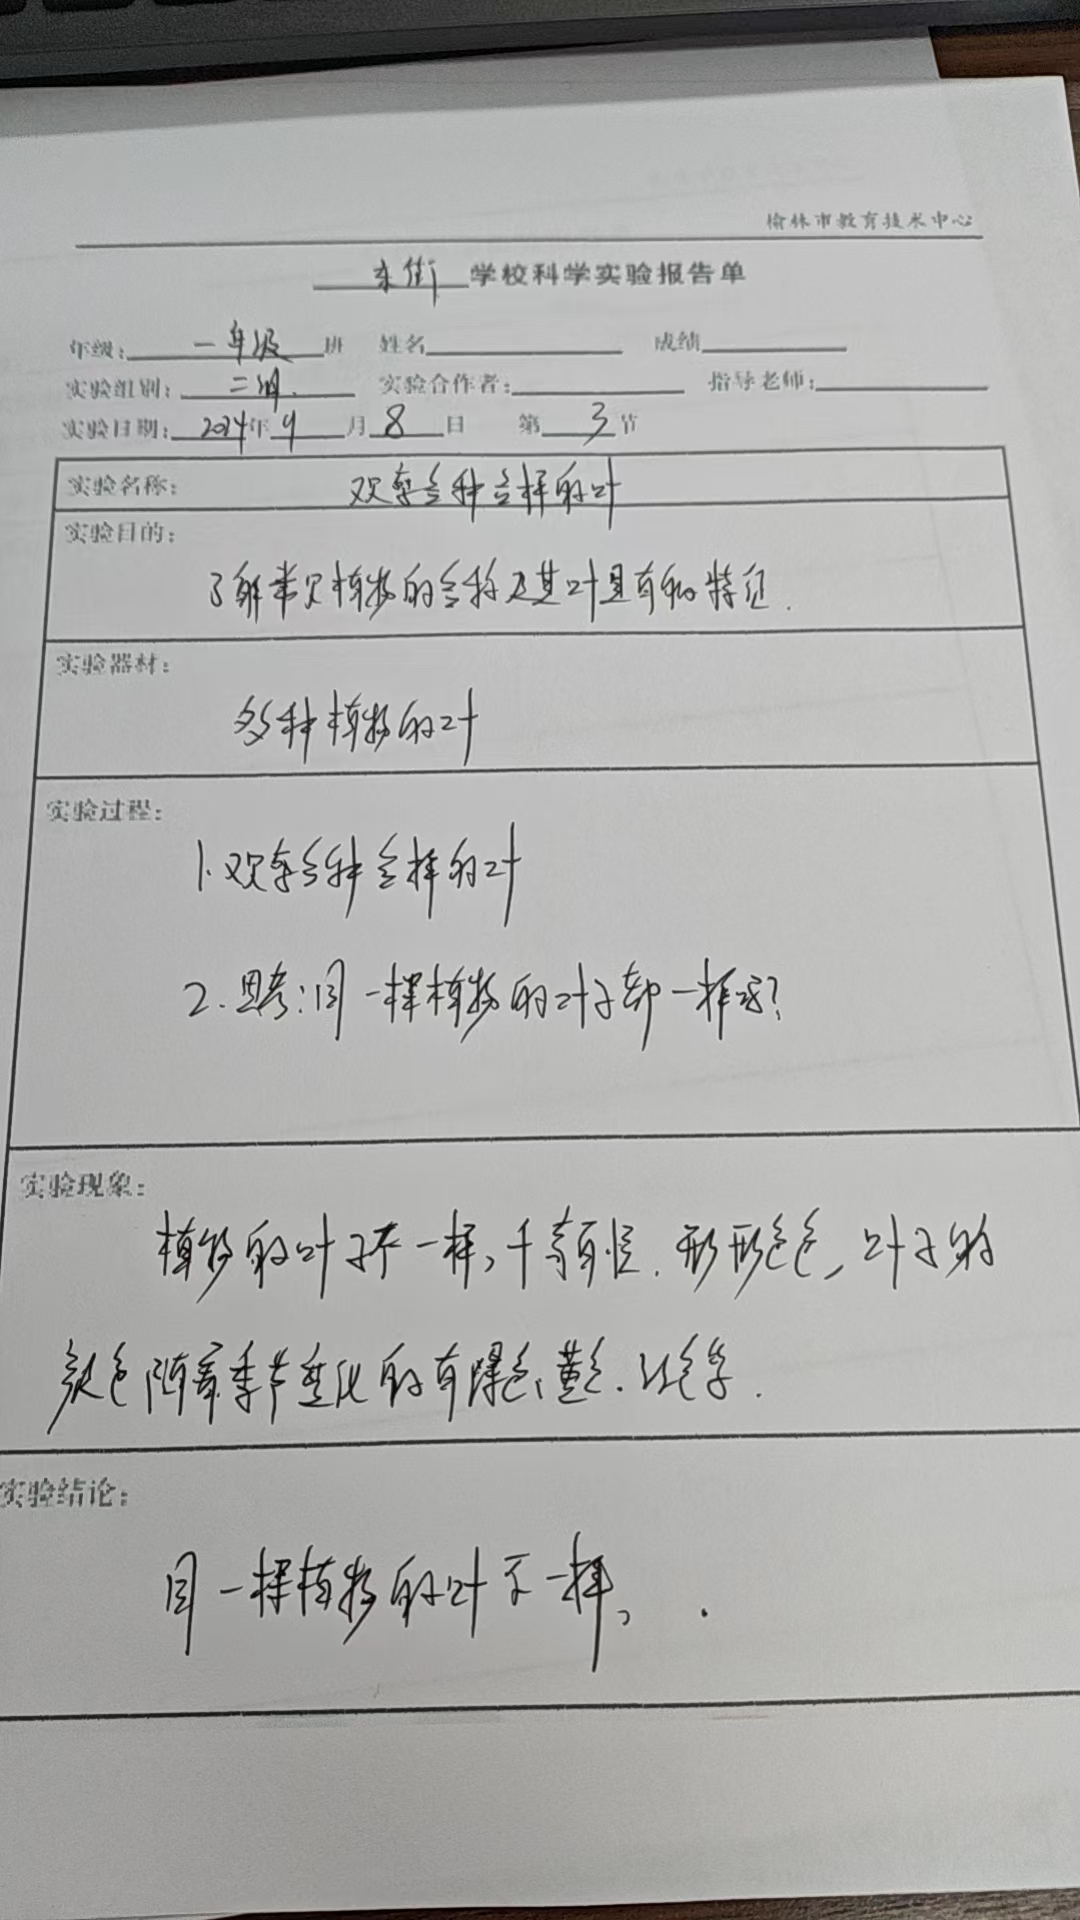 榆林市教育技术中心
东街学校科学实验报告单
年级：一年级班 姓名 成绩
实验组别：二组. 实验合作者： 指导老师：
实验日期：2024年9月8日 第3节
实验名称： 观察各种各样的叶
实验目的：
了解常见植物的名称及其叶具有的特征.
实验器材：
多种植物的叶
实验过程：
1.观察各种各样的叶
2.思考：同一样植物的叶子都一样吗?
实验现象：
植物的叶子不一样,千奇百怪.形形色色,叶子的
颜色随着季节变化的有绿色、黄色.红色等.
实验结论：
同一样植物的叶不一样,.